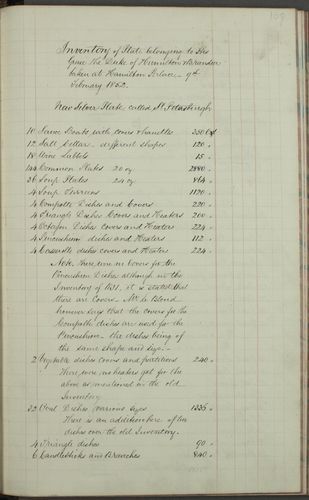 169
Inventory of Plate belonging to His
Grace the Duke of Hamilton & Brandon
taken at Hamilton Palace _ 9th
February 1852.
New Silver Plate called St. Petersburgh
10 Sauce Boats with covers & handles 350 oz
12 Salt Cellars different shapes 120 "
18 Wine Labels 15 "
144 Common Plates 20 oz 2880 "
36 Soup Plates 24 oz 864 "
4 Soup Terreens 1120 "
4 Compotte Dishes and Covers 220 "
4 Triangle Dishes Covers and Heaters 200 "
4 Octagon Dishes Covers and Heaters 224 "
4 Pincushion dishes and Heaters 112 "
4 Casserole dishes covers and Heaters 224 "
Note there are no Covers for the
Pincushion Dishes although in the
Inventory of 1831, it is stated that
there are Covers. Mr. le Blond
however says that the covers for the
Compotte dishes are used for the
Pincushion - the dishes being of
the same shape and size.
2 Vegetable dishes covers and partitions 240 "
There were no heaters got for the
above as mentioned in the old
Inventory
22 Oval Dishes various sizes 1335 "
There is an addition here of two
dishes over the old Inventory.
4 Triangle dishes 90 "
6 Candlesticks and Branches 840 "